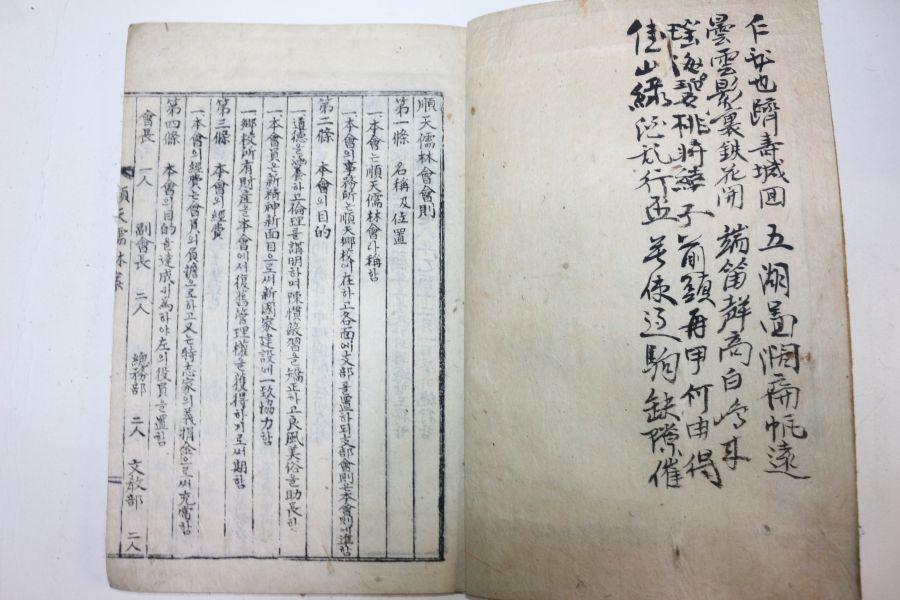 仁也躋壽城回 五湖濶扁帆遠
曇雲影裏鉄花開 端笛聲高白
瑤海碧桃時結子 前頭再甲何由得
佳山綠酒乱行盃 莫使过駒缺隙催
順天儒林會會則
第一條 名稱及位置
一.本會는順天儒林會라稱함
一.本會의事務所는順天鄕校에在하고各面에支部를置하되支部會則은本會則에準함
第二條 本會의目的
一.道德을涵養하고倫理를講明하며陳慣斂習을矯正하고良風美俗을助長한
一.本會員은新精神新面目으로써新國家建設에一致協力함
一.鄕校所有財産을本會에서復舊管理權을獲得하기로써期함
第三條 本會의經費
一.本會의經費는會員의負擔으로하고又는特志家의義捐金으로써充當함
第四條 本會의目的을達成키爲하야左의役員을置함
會長 一人 副會長 二人 總務部 二人 文敎部 二人
順天儒林案